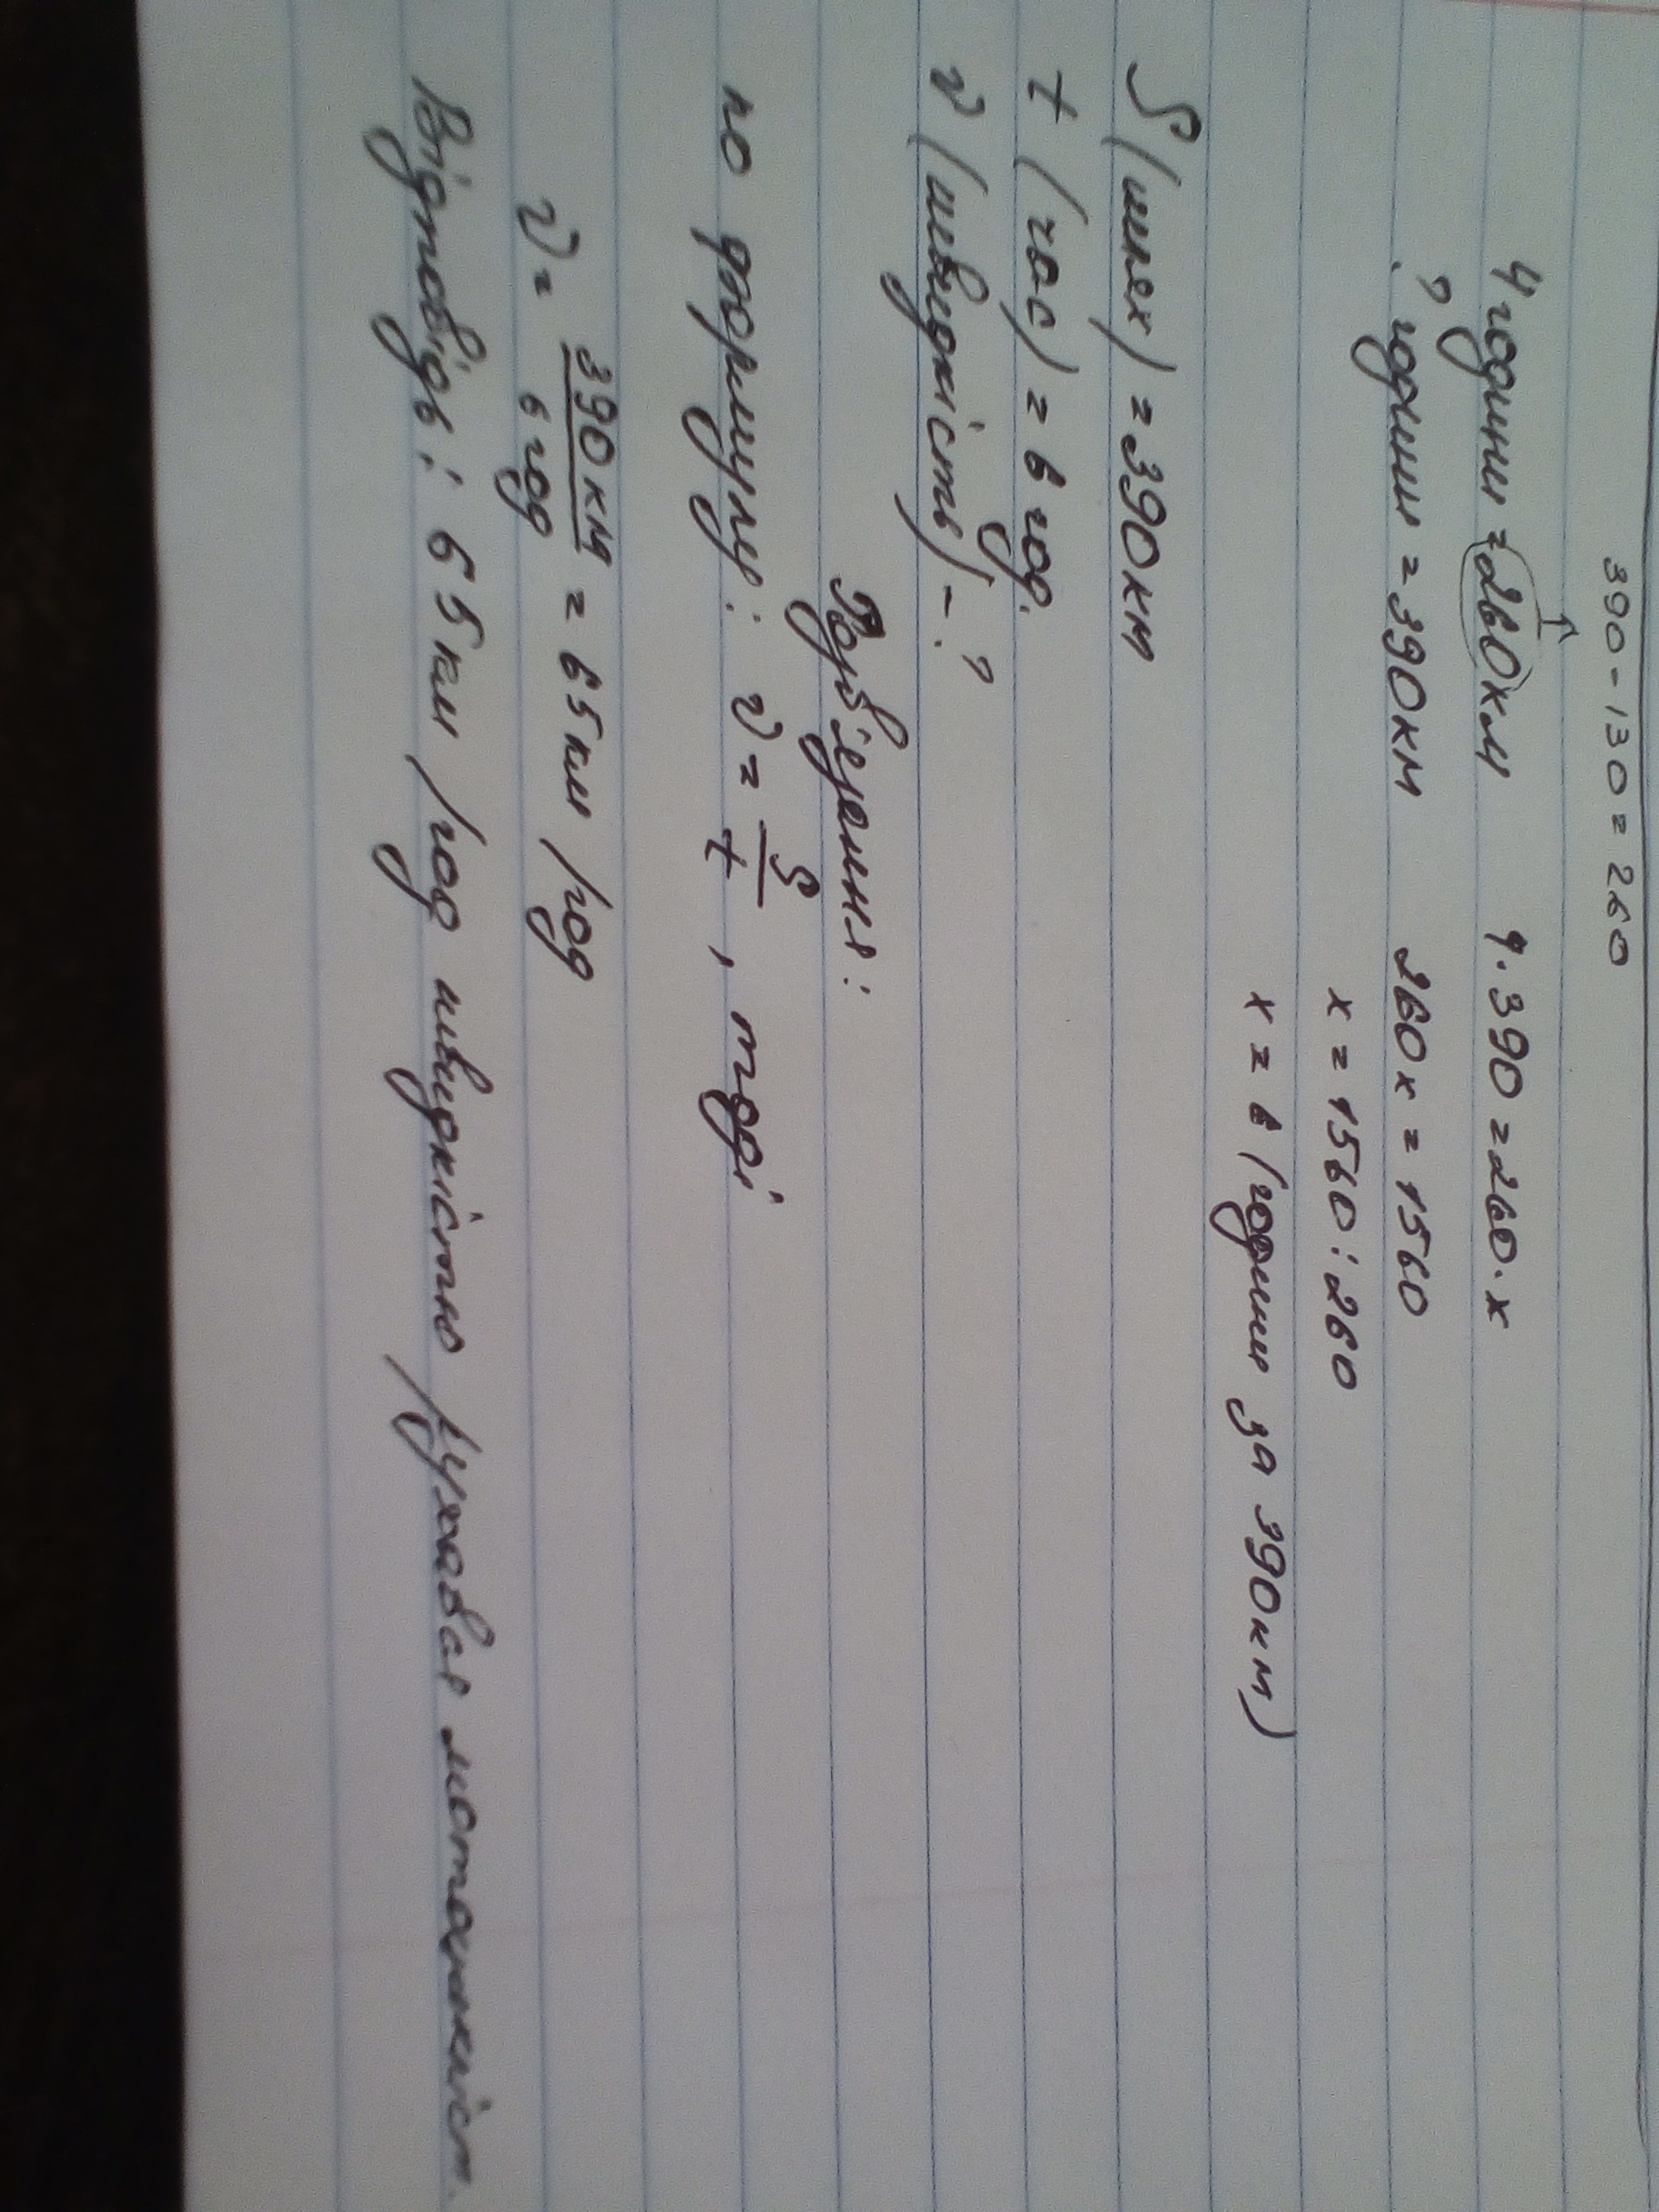 390-130=260
4 години = 260 км 4·390=260·x
? годин = 390 км 260x=1560
x=1560:260
x=6 (годин за 390 км)
S (шлях) = 390 км
t (час) = 6 год.
v (швидкість) - ?
Розв'язання:
по формулі: v = S/t, тоді
v = 390 км/6 год = 65 км/год
Відповідь: 65 км/год швидкістю рухався мотоцикліст.